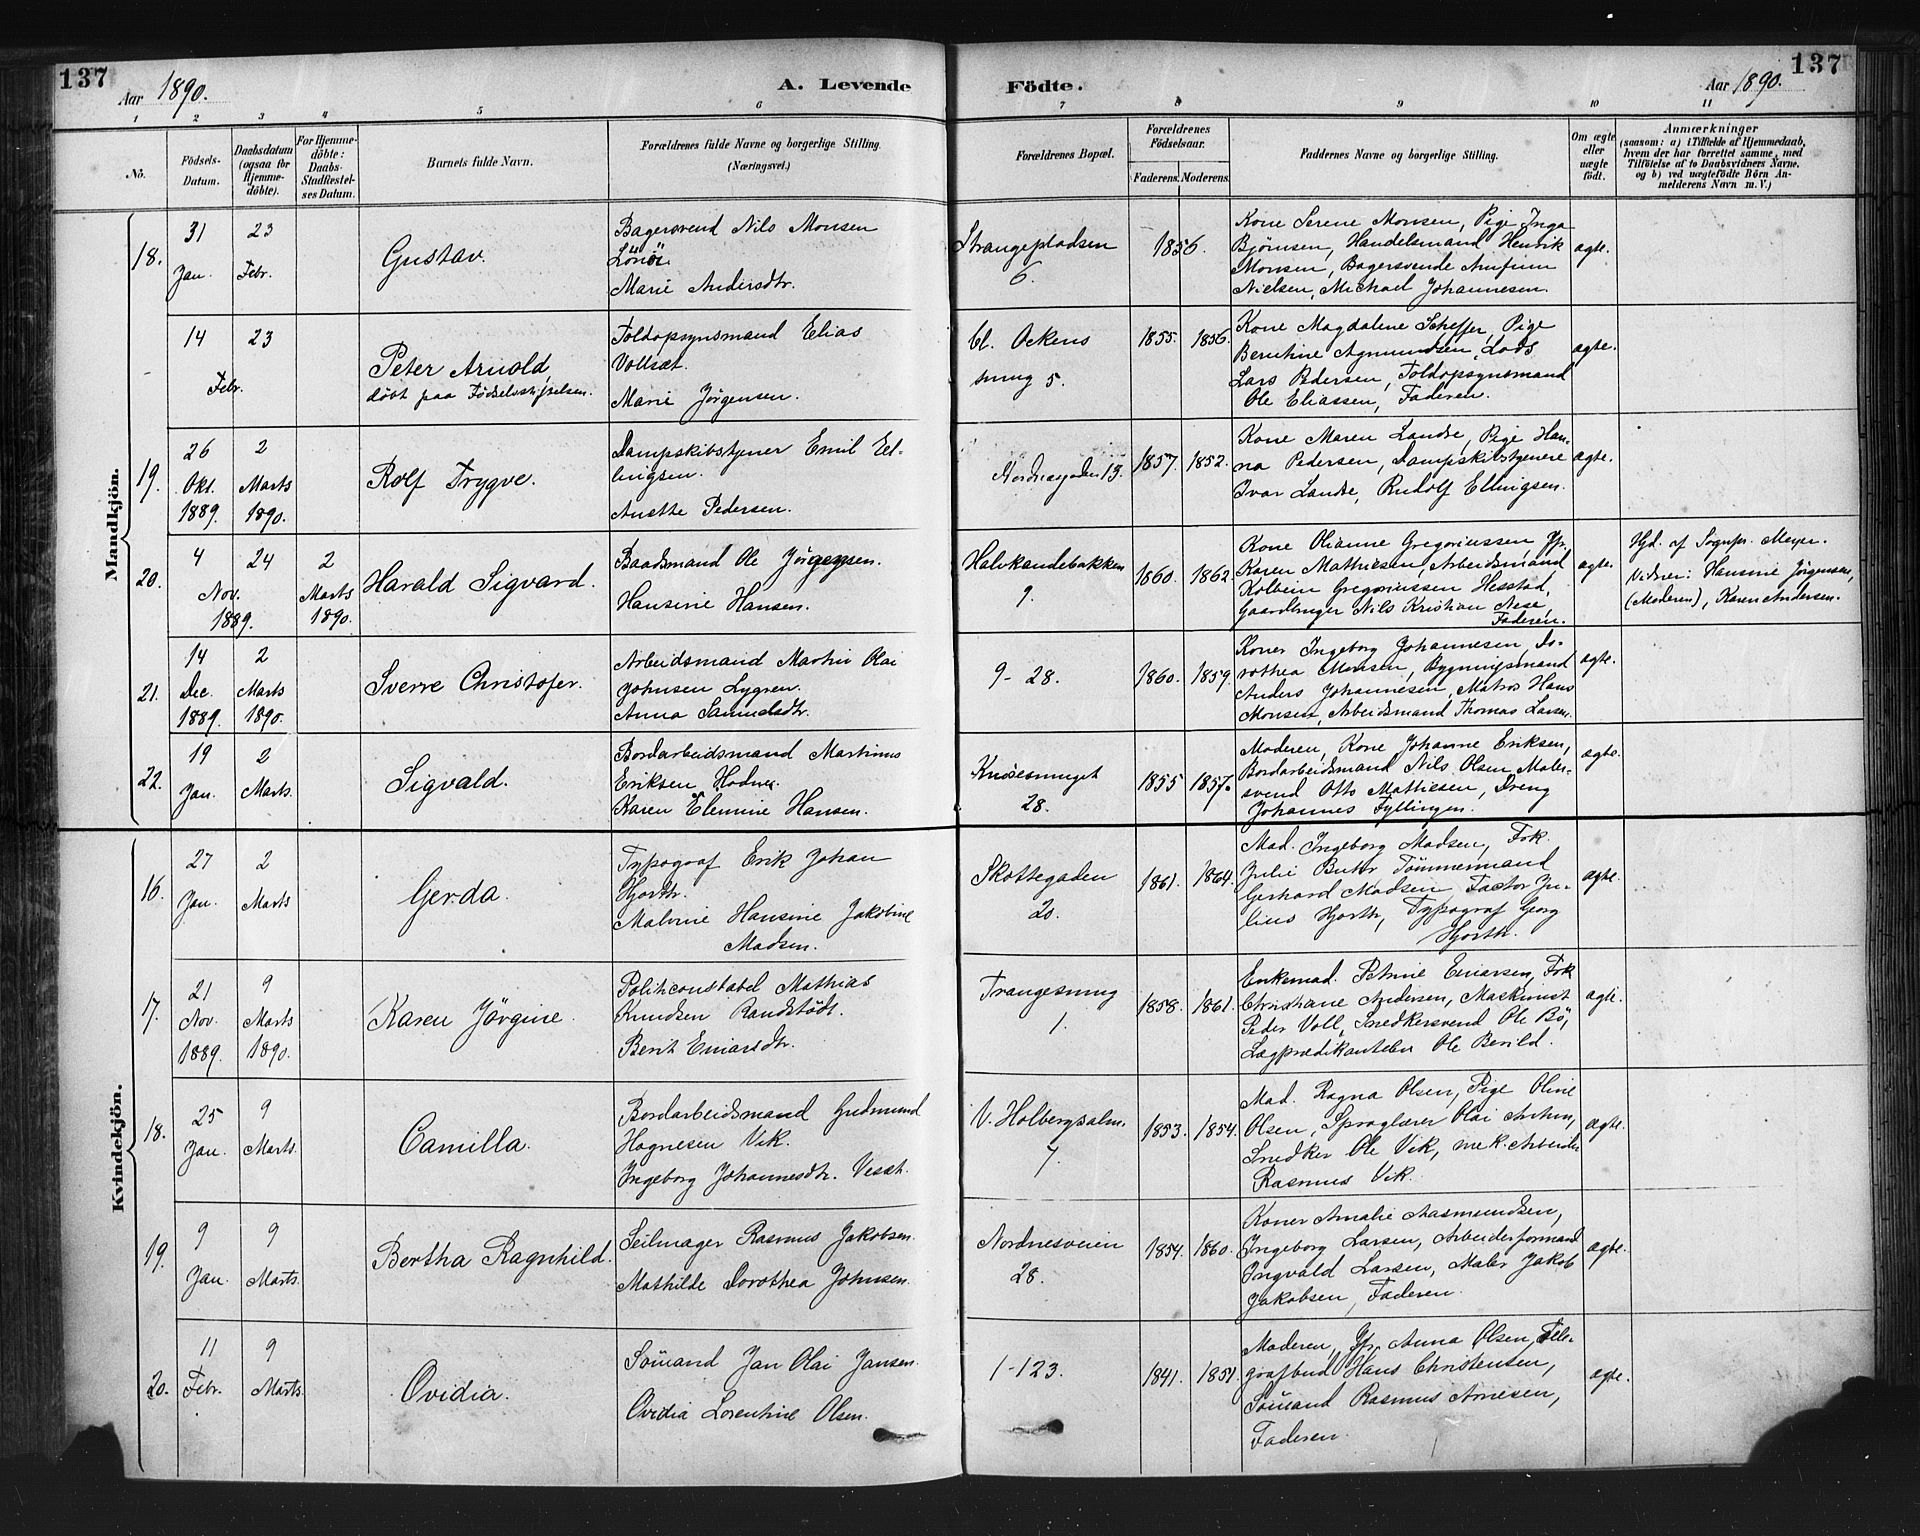 137
Aar 1890.
A. Levende
Födte.
Aar 1890.
137
1 2 3 4 5 6 7 8 9 10 11
No.
Födsels-
Datum.
Daabsdatum
(ogsaa for
Hjemme-
döbte).
For Hjemme-
döbte:
Daabs-
Stadfæstel-
ses Datum.
Barnets fulde Navn.
Forældrenes fulde Navne og borgerlige Stilling.
(Næringsvei.)
Forældrenes Bopæl.
Forældrenes
Födselsaar.
Faderens. Moderens.
Faddernes Navne og borgerlige Stilling.
Om ægte
eller
uægte
födt.
Anmærkninger
(saasom: a) i Tilfælde af Hjemmedaab,
hvem der har forrettet samme, med
Tilföielse af to Daabsvidners Navne,
og b) ved uægtefödte Börn An-
melderens Navn m. V.)
Mandkjön.
18.
31
Jan.
23
Febr.
Gustav.
Bagersvend Nils Monsen
Marie Andersdtr.
Strangepladsen
6.
1856.
Kone Serene Monsen, Pige Inga
Bjørnsen, Handelsmand Henrik
Monsen, Bagersvende Arnfinn
Nielsen, Michael Johannesen.
ægte.
14
23
Febr.
Peter Arnold
döbt paa Födselsstiftelsen.
Toldopsynsmand Elias
Vollsæt.
Marie Jörgensen.
Cl. Ockens
smug 5.
1855. 1856.
Kone Magdalene Scheffer, Pige
Berntine Agmundsen, Lods
Lars Pedersen, Toldopsynsmand
Ole Eliassen, Faderen.
ægte.
19.
26
Okt.
1889.
2
Marts
1890.
Rolf Trygve.
Dampskibstjener Emil El-
lingsen.
Anette Pedersen.
Nordnesgaden 13.
1857. 1852.
Kone Maren Landse, Pige Han-
na Pedersen, Dampskibstjenere
Ivar Landse, Rudolf Ellingsen.
ægte.
20.
4
Nov.
1889.
24
2
Marts
1890.
Harald Sigvard.
Baadsmand Ole Jörgensen.
Hansine Hansen.
Halvkandebakken
9.
1860. 1862.
Kone Olianne Gregoriussen, Jfr.
Karen Mathiesen, Arbeidsmand
Kolbein Gregoriussen Hesstad,
Gaardbruger Nils Kristian Nese,
Faderen.
ægte.
Hjd. af Sognepr. Meyer.
Vidner: Hansine Jörgensen,
(Moderen), Karen Andersen.
21.
14
Dec.
1889.
2
Marts
1890.
Sverre Christofer.
Arbeidsmand Martin Olai
Johnsen Lygren.
Anna Samuelsdtr.
9-28.
1860. 1859.
Koner Ingeborg Johannesen, Do-
rothea Monsen, Bygningsmand
Anders Johannesen, Matros Hans
Monsen, Arbeidsmand Thomas Larsen.
ægte.
22.
19
Jan.
2
Marts.
Sigvald.
Bordarbeidsmand Martinus
Eriksen Hodne.
Karen Elenine Hansen.
Knösesmuget
28.
1855 1857.
Moderen, Kone Johanne Eriksen,
Bordarbeidsmand Nils Olsen, Maler-
svend Otto Mathiesen, Dreng
Johannes Fyllingen.
ægte.
Kvindekjön.
16.
27
Jan.
2
Marts
Gerda.
Typograf Erik Johan
Hjorth.
Malvine Hansine Jakobine
Madsen.
Skottegaden
20.
1861. 1864.
Mad. Ingeborg Madsen, Frk.
Julie Tömmermand
Gerhard Madsen Factor Ju-
lius Hjorth, Typograf Georg
Hjorth.
ægte.
17.
21
Nov.
1889.
9
Marts
1890.
Karen Jörgine.
Politiconstabel Mathias
Knudsen Randstödt.
Berit Einarsdtr.
Trangesmug
1.
1858. 1861.
Enkemad. Petrine Einarsen, Frk
Christiane Andersen, Maskinist
Peder Voll, Snedkersvend Ole Bö,
Lægprædikanten Ole Berild.
ægte.
18.
25
Jan.
9
Marts.
Camilla.
Bordarbeidsmand Gudmund
Hognesen Vik.
Ingeborg Johannesdtr.
V. Holbergsalm.
7.
1853. 1854.
Mad. Ragna Olsen, Pige Oline
Olsen, Sproglærer Olai
Snedker Ole Vik,
Rasmus Vik.
ægte.
19.
9
Jan.
9
Marts.
Bertha Ragnhild.
Seilmager Rasmus Jakobsen.
Mathilde Dorothea Johnsen.
Nordnesveien
28.
1854. 1860.
Koner Amalie Aasmundsen,
Ingeborg Larsen, Arbeidsformand
Ingvald Larsen, Maler Jakob
Jakobsen, Faderen.
ægte.
20.
11
Febr.
9
Marts.
Ovidia.
Sömand Jan Olai Jansen.
Ovidia Lorentine Olsen.
1-123.
1841. 1851.
Moderen, Jfr. Anna Olsen, Tele-
grafbud Hans Christensen,
Sömand Rasmus Arnesen,
Faderen.
ægte.